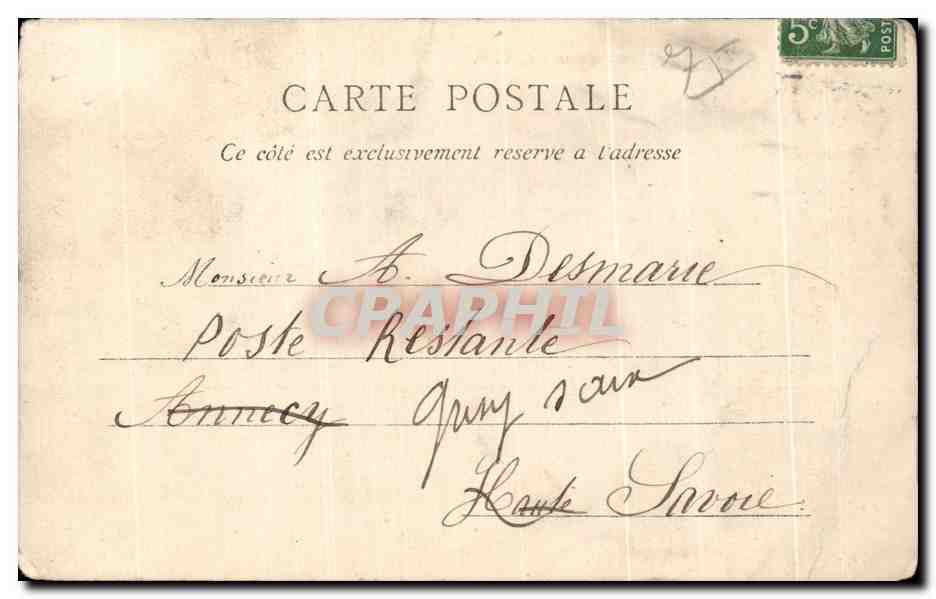 5c
POST
CARTE POSTALE
Ce côté est exclusivement reserve a l'adresse
Monsieur A. Desmarie
CPARPHIL
Poste Restante
Annecy
Haute Savoie